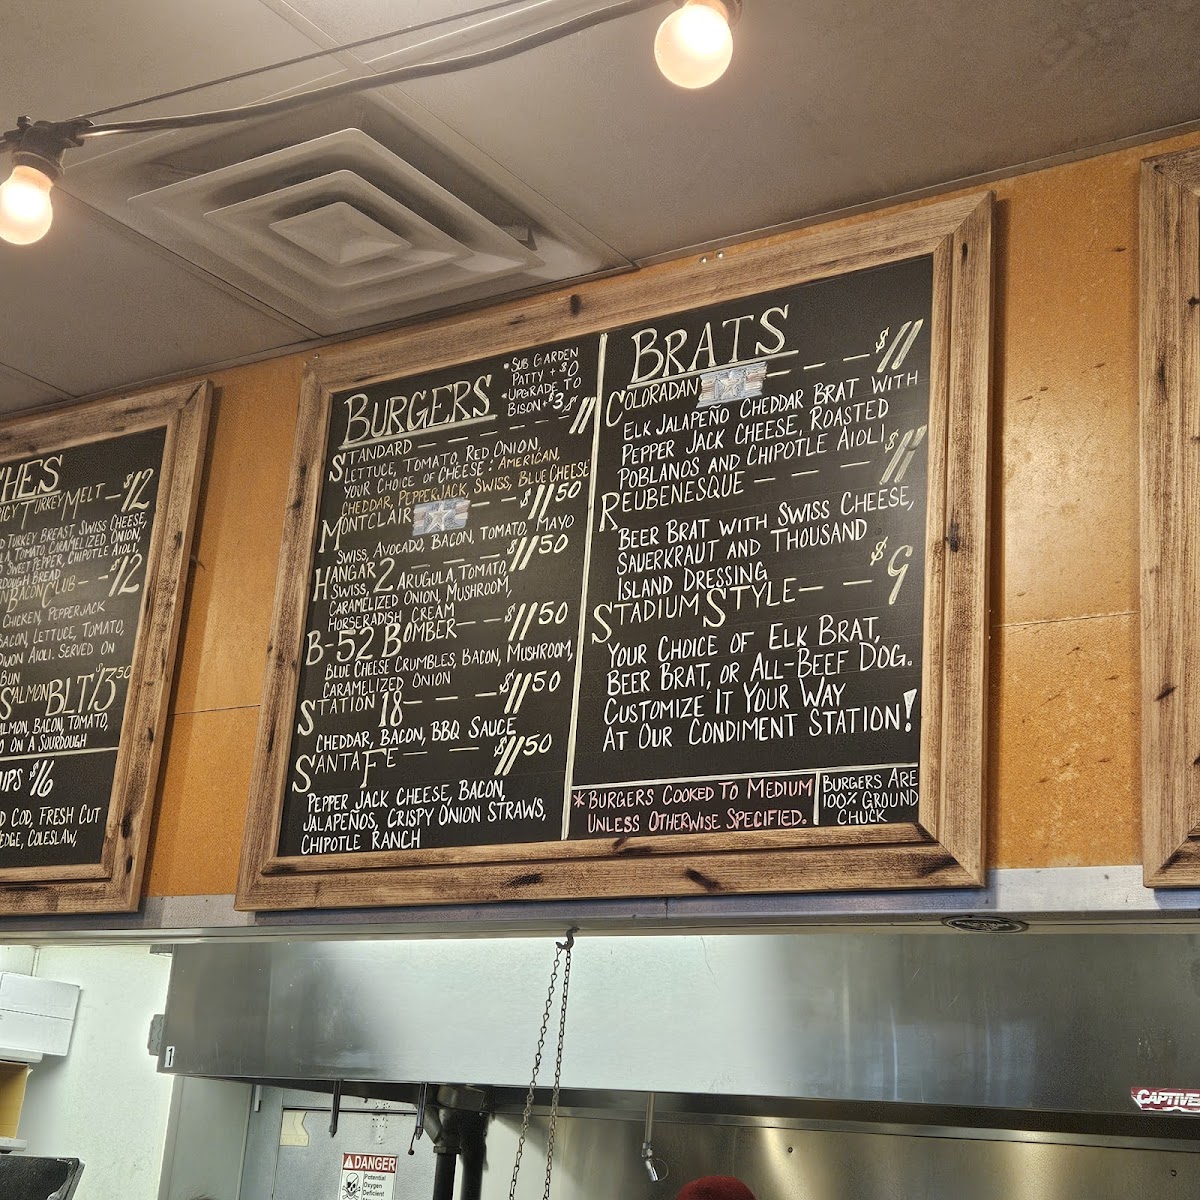 CHES
ICY TURKEY MELT — $12
TURKEY BREAST, SWISS CHEESE,
TOMATO, CARAMELIZED ONION,
SWEET PEPPER, CHIPOTLE AIOLI,
BREAD
BACON CLUB - - $12
CHICKEN, PEPPERJACK
BACON, LETTUCE, TOMATO,
AIOLI. SERVED ON
BUN
SALMON BLT $13.50
BACON, TOMATO,
ON A SOURDOUGH
IPS $16
COD, FRESH CUT
COLESLAW,
BURGERS
* SUB GARDEN
PATTY + $0
* UPGRADE TO
BISON + $3
STANDARD — — — — — $11
LETTUCE, TOMATO, RED ONION,
YOUR CHOICE OF CHEESE: AMERICAN,
CHEDDAR, PEPPERJACK, SWISS, BLUE CHEESE
MONTCLAIR — — $11.50
SWISS, AVOCADO, BACON, TOMATO, MAYO
HANGAR 2 — — — $11.50
SWISS, ARUGULA, TOMATO,
CARAMELIZED ONION, MUSHROOM,
HORSERADISH CREAM
B-52 BOMBER — — $11.50
BLUE CHEESE CRUMBLES, BACON, MUSHROOM,
CARAMELIZED ONION
STATION 18 — — — — $11.50
CHEDDAR, BACON, BBQ SAUCE
SANTA FE — — — $11.50
PEPPER JACK CHEESE, BACON,
JALAPEÑOS, CRISPY ONION STRAWS,
CHIPOTLE RANCH
BRATS
COLORADAN — — — $11
ELK JALAPEÑO CHEDDAR BRAT WITH
PEPPER JACK CHEESE, ROASTED
POBLANOS AND CHIPOTLE AIOLI
REUBENESQUE — — — — $11
BEER BRAT WITH SWISS CHEESE,
SAUERKRAUT AND THOUSAND
ISLAND DRESSING
STADIUM STYLE — — — $9
YOUR CHOICE OF ELK BRAT,
BEER BRAT, OR ALL-BEEF DOG.
CUSTOMIZE IT YOUR WAY
AT OUR CONDIMENT STATION!
* BURGERS COOKED TO MEDIUM
UNLESS OTHERWISE SPECIFIED.
BURGERS ARE
100% GROUND
CHUCK
1
CAPTIVE
DANGER
Potential
Oxygen
Deficient